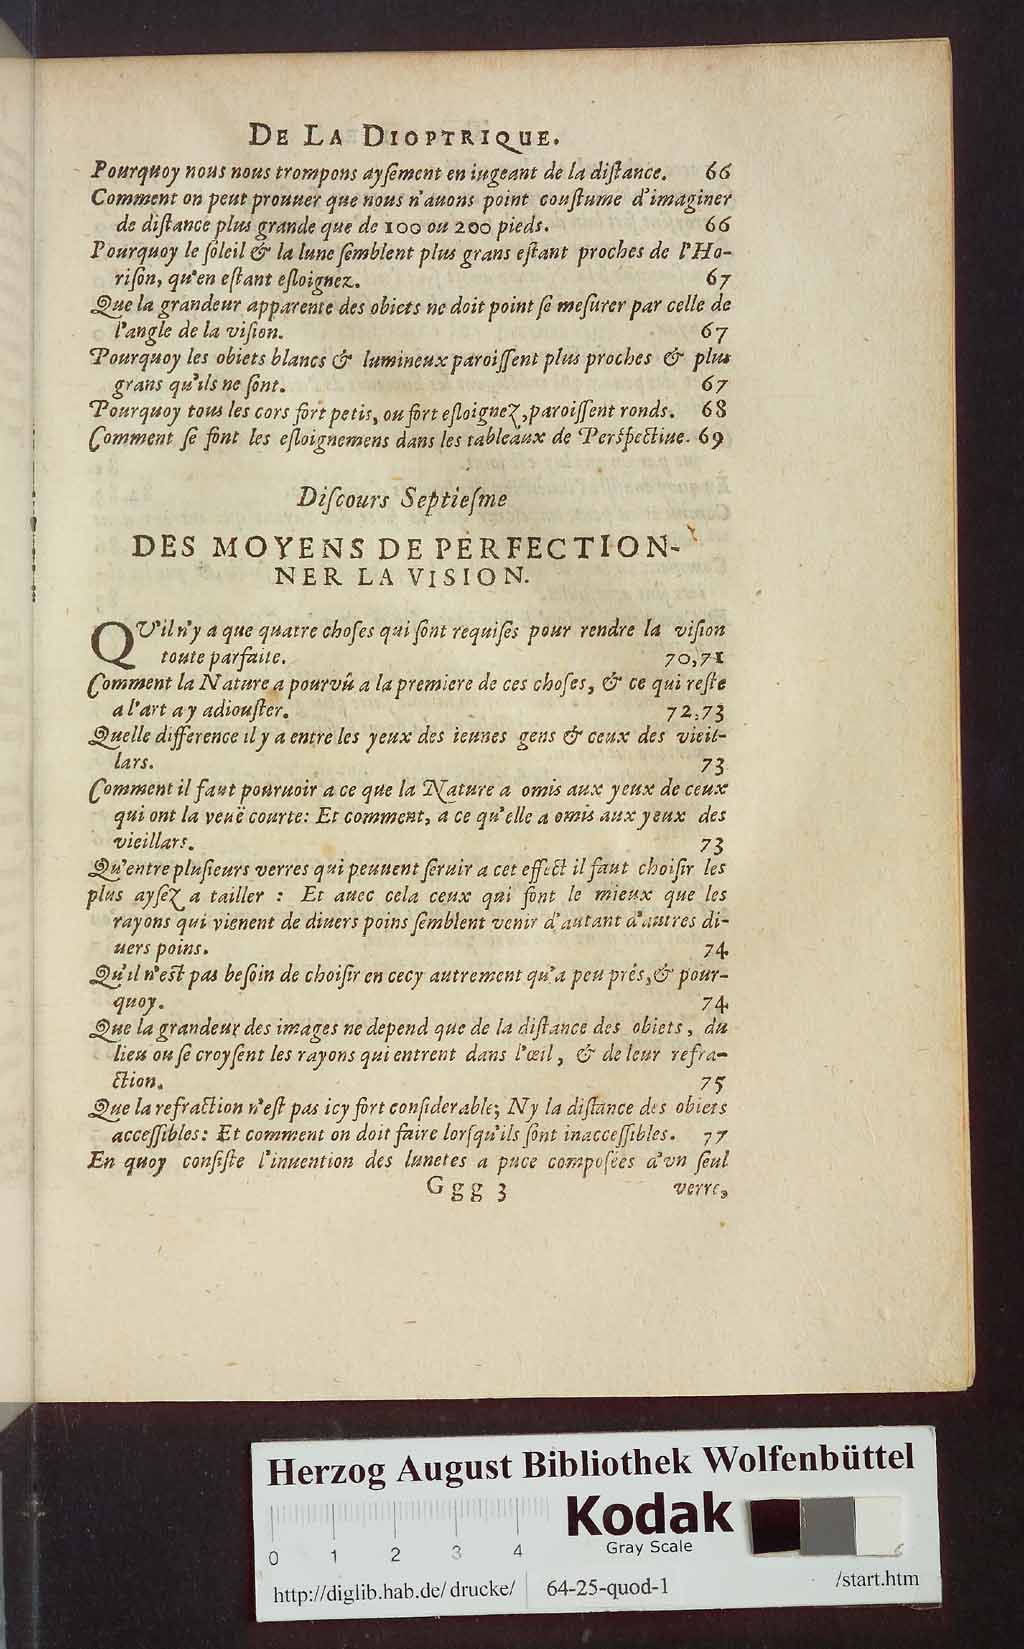 DE LA DIOPTRIQUE.
Pourquoy nous nous trompons ayſement en iugeant de la diſtance. 66
Comment on peut prouuer que nous n'auons point couſtume d'imaginer
de diſtance plus grande que de 100 ou 200 pieds. 66
Pourquoy le ſoleil & la lune ſemblent plus grans eſtant proches de l'Ho-
riſon, qu'en eſtant eſloignez. 67
Que la grandeur apparente des obiets ne doit point ſe meſurer par celle de
l'angle de la viſion. 67
Pourquoy les obiets blancs & lumineux paroiſſent plus proches & plus
grans qu'ils ne ſont. 67
Pourquoy tous les cors fort petis, ou fort eſloignez, paroiſſent ronds. 68
Comment ſe font les eſloignemens dans les tableaux de Perſpectiue. 69
Diſcours Septieſme
DES MOYENS DE PERFECTION-
NER LA VISION.
QU'il n'y a que quatre choſes qui ſont requiſes pour rendre la viſion
toute parfaite. 70,71
Comment la Nature a pourvû a la premiere de ces choſes, & ce qui reſte
a l'art a y adiouſter. 72,73
Quelle difference il y a entre les yeux des ieunes gens & ceux des vieil-
lars. 73
Comment il faut pouruoir a ce que la Nature a omis aux yeux de ceux
qui ont la veuë courte: Et comment, a ce qu'elle a omis aux yeux des
vieillars. 73
Qu'entre pluſieurs verres qui peuuent ſeruir a cet effect il faut choiſir les
plus ayſez a tailler : Et auec cela ceux qui font le mieux que les
rayons qui vienent de diuers poins ſemblent venir d'autant d'autres di-
uers poins. 74
Qu'il n'eſt pas beſoin de choiſir en cecy autrement qu'a peu prés, & pour-
quoy. 74
Que la grandeur des images ne depend que de la diſtance des obiets, du
lieu ou ſe croyſent les rayons qui entrent dans l'œil, & de leur refra-
ction. 75
Que la refraction n'eſt pas icy fort conſiderable; Ny la diſtance des obiets
acceſſibles: Et comment on doit faire lorſqu'ils ſont inacceſſibles. 77
En quoy conſiſte l'inuention des lunetes a puce compoſées d'vn ſeul
Ggg 3 verre,
Herzog August Bibliothek Wolfenbüttel
Kodak
Gray Scale
0 1 2 3 4
6
http://diglib.hab.de/drucke/ 64-25-quod-1 /start.htm